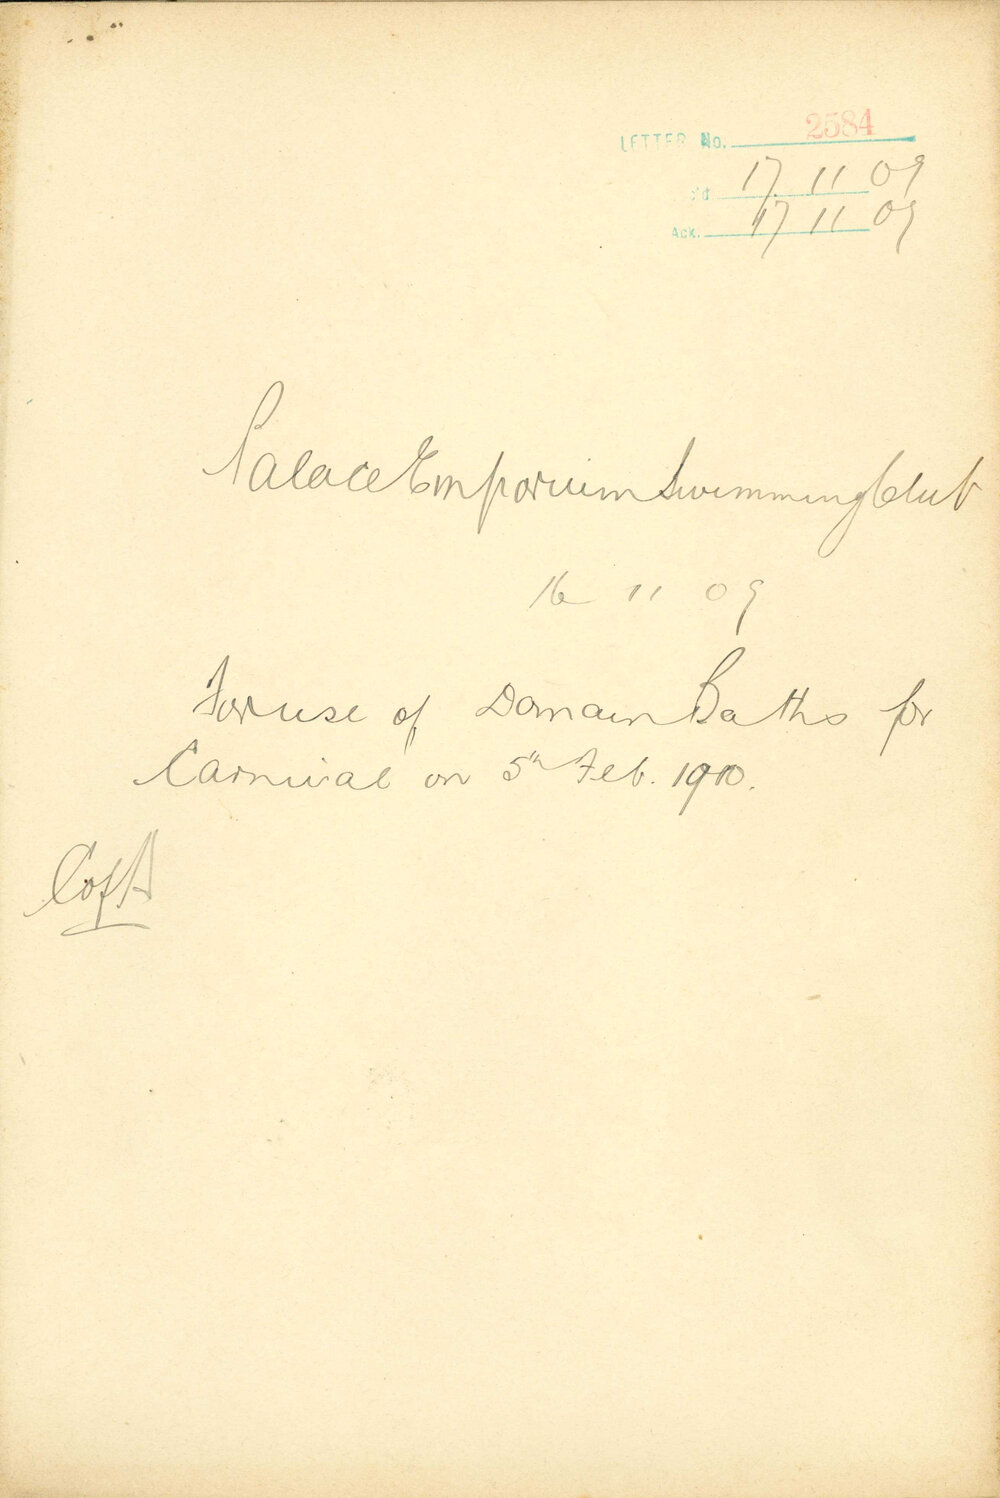 LETTER No. 2584
'd 17 11 09
Ack. 17 11 09
Palace Emporium Swimming Club
16 11 09
For use of Domain Baths for
Carnival on 5th Feb. 1910.
C of A